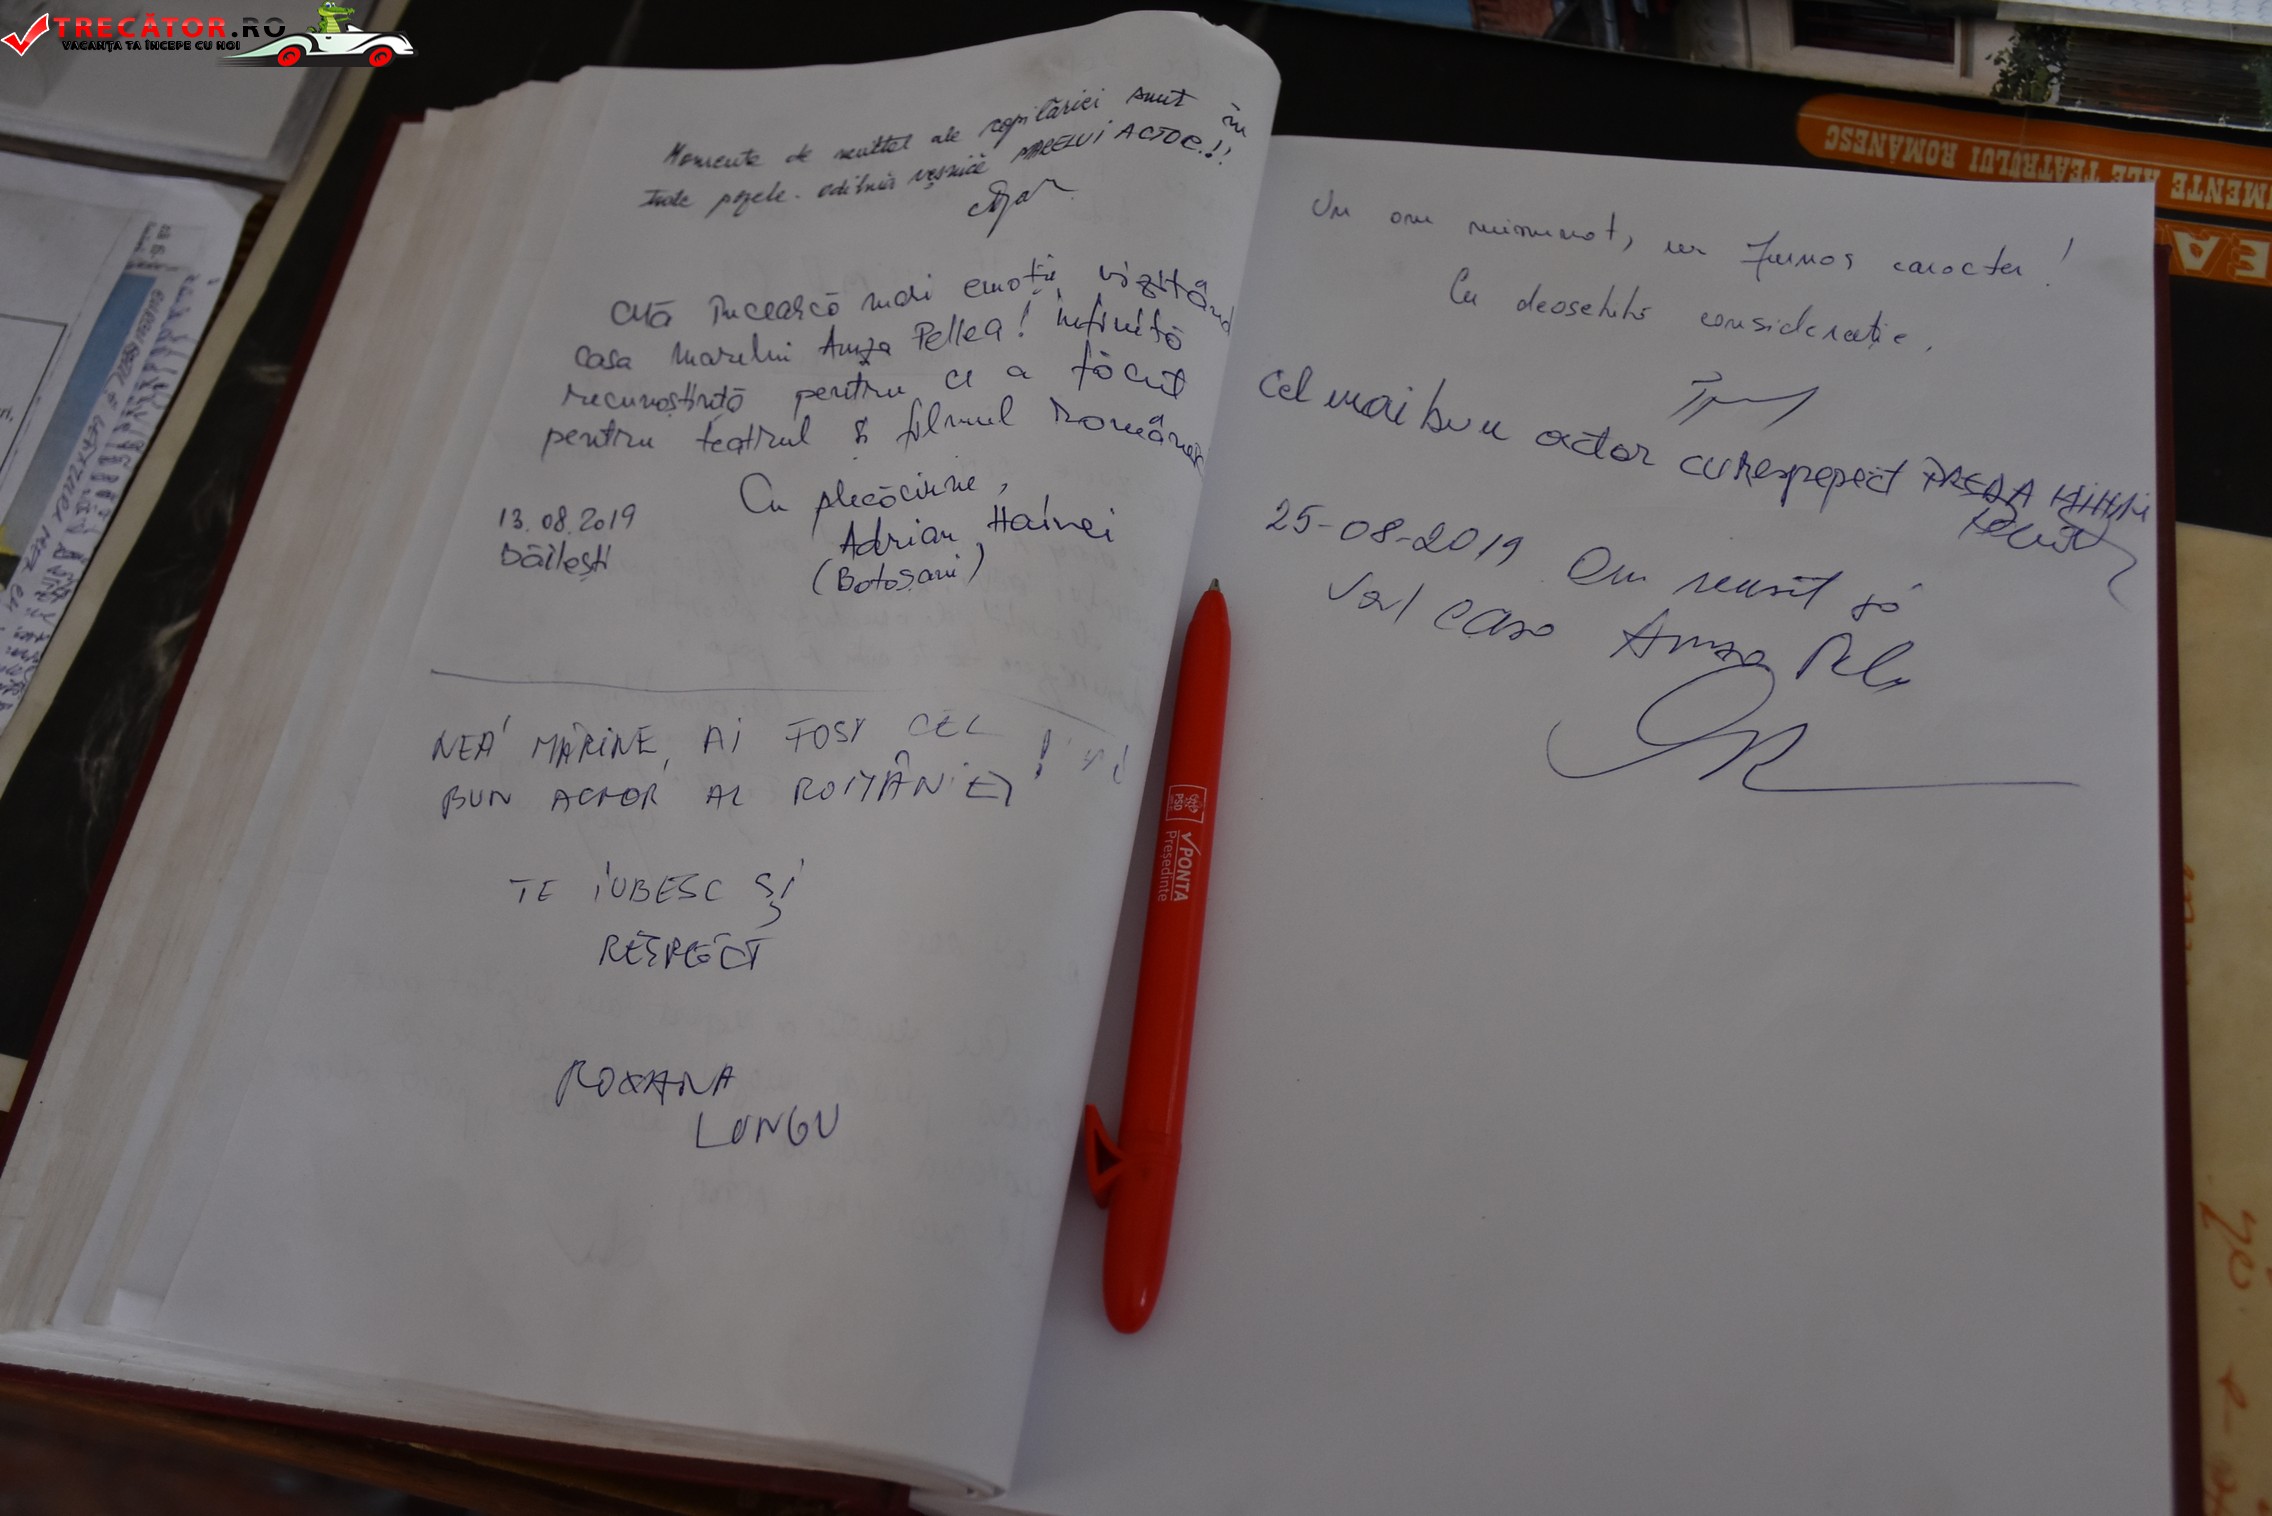 TRECĂTOR.RO
VACANȚA TA ÎNCEPE CU NOI
Momente de neuitat ale copilăriei sunt în
toate pozele. odihnă veșnică MARELUI ACTOR!!
Câtă încearcă mari emoții, vizitând
casa marelui Amza Pellea! Infinită
recunoștință pentru ce a făcut
pentru teatrul și filmul românesc
Cu plecăciune,
13.08.2019
Adrian Hainei
Băilești
(Botoșani)
NEA' MĂRINE, AI FOST CEL
BUN ACTOR AL ROMÂNIEI!
TE IUBESC ȘI
RESPECT
ROXANA
LUNGU
Un om minunat, un frumos caracter!
Cu deosebită considerație,
Cel mai bun actor cu respepect PREDA
25-08-2019 Am reusit să
văd casa Amza
PSD
PONTA
Președinte
MENTE ALE TEATRULUI ROMÂNESC
EA